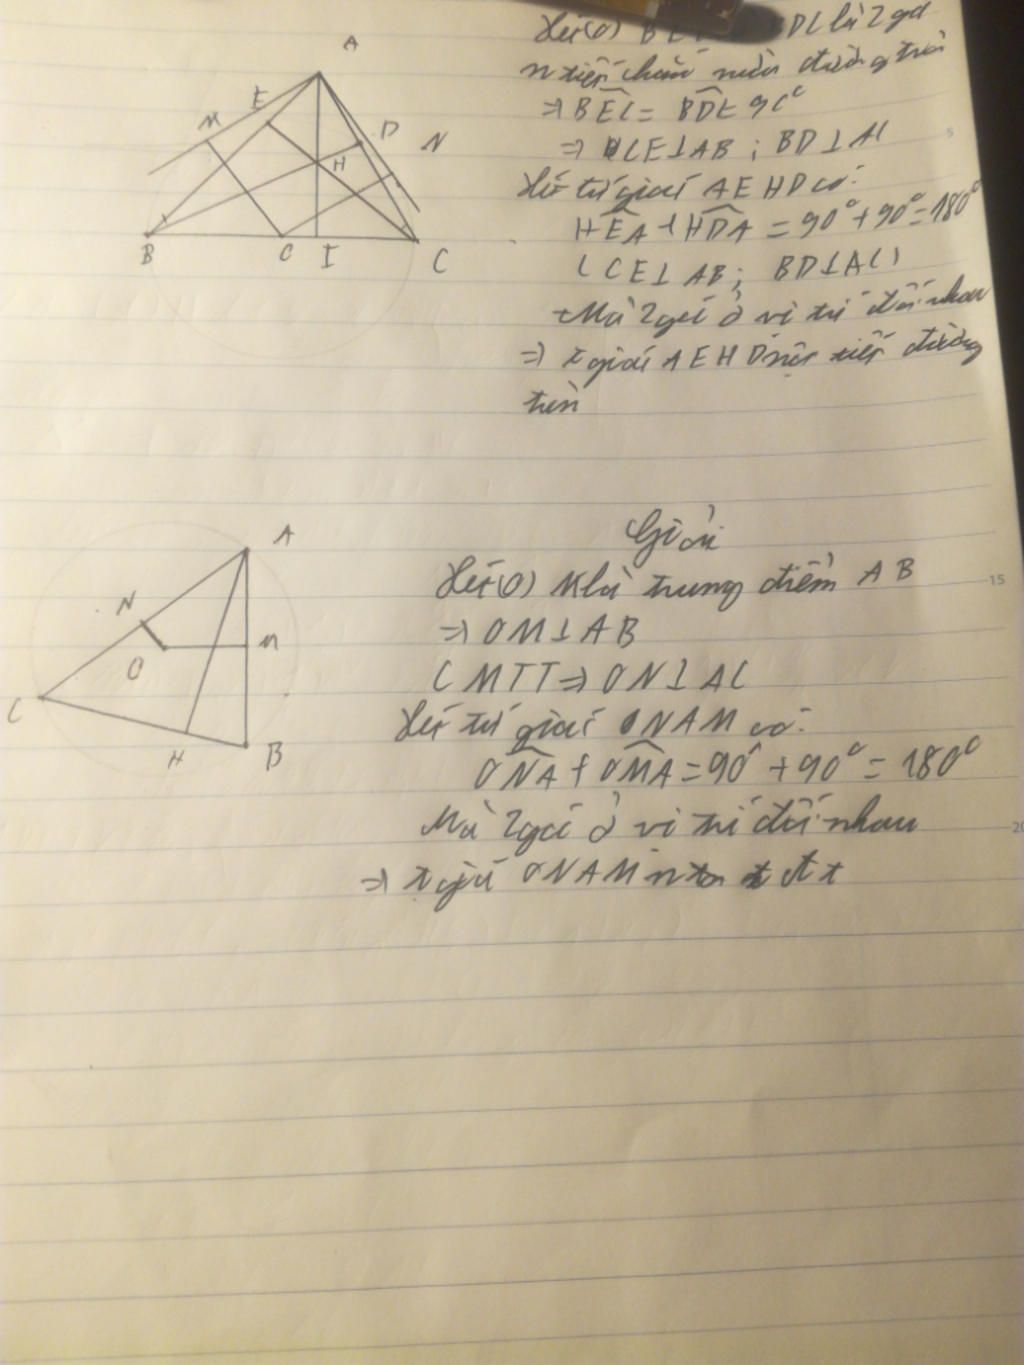 Xét (O) BEC DC là 2 góc
n tiếp chắn nửa đường tròn
=> BEC = BDC = 90°
=> CE⊥AB ; BD⊥AC
Xét tứ giác AEHD có:
HEA + HDA = 90° + 90° = 180°
(CE⊥AB; BD⊥AC)
Mà 2 góc ở vị trí đối nhau
=> t giác AEHD nội tiếp đường
tròn
A
E
M
D
N
H
B
O
I
C
Giải
Xét (O) M là trung điểm AB
=> OM⊥AB
CMTT => ON⊥AC
Xét tứ giác ONAM có:
ONA + OMA = 90° + 90° = 180°
Mà 2 góc ở vị trí đối nhau
=> t giác ONAM nt đt
A
N
M
O
C
H
B
15
20
5